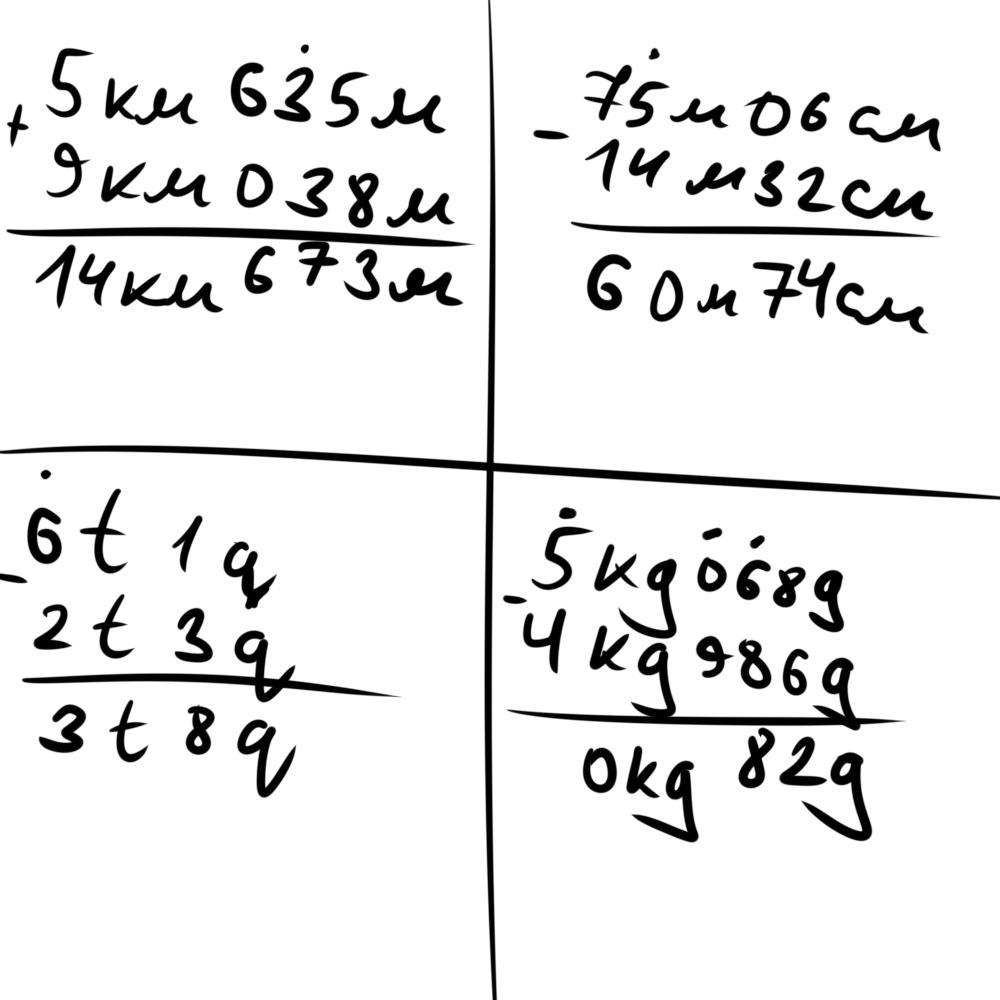 5 км 635 м
+
9 км 038 м
14 км 673 м
75 м 06 см
-
14 м 32 см
60 м 74 см
6 t 1 q
-
2 t 3 q
3 t 8 q
5 kg 068 g
-
4 kg 986 g
0 kg 82 g